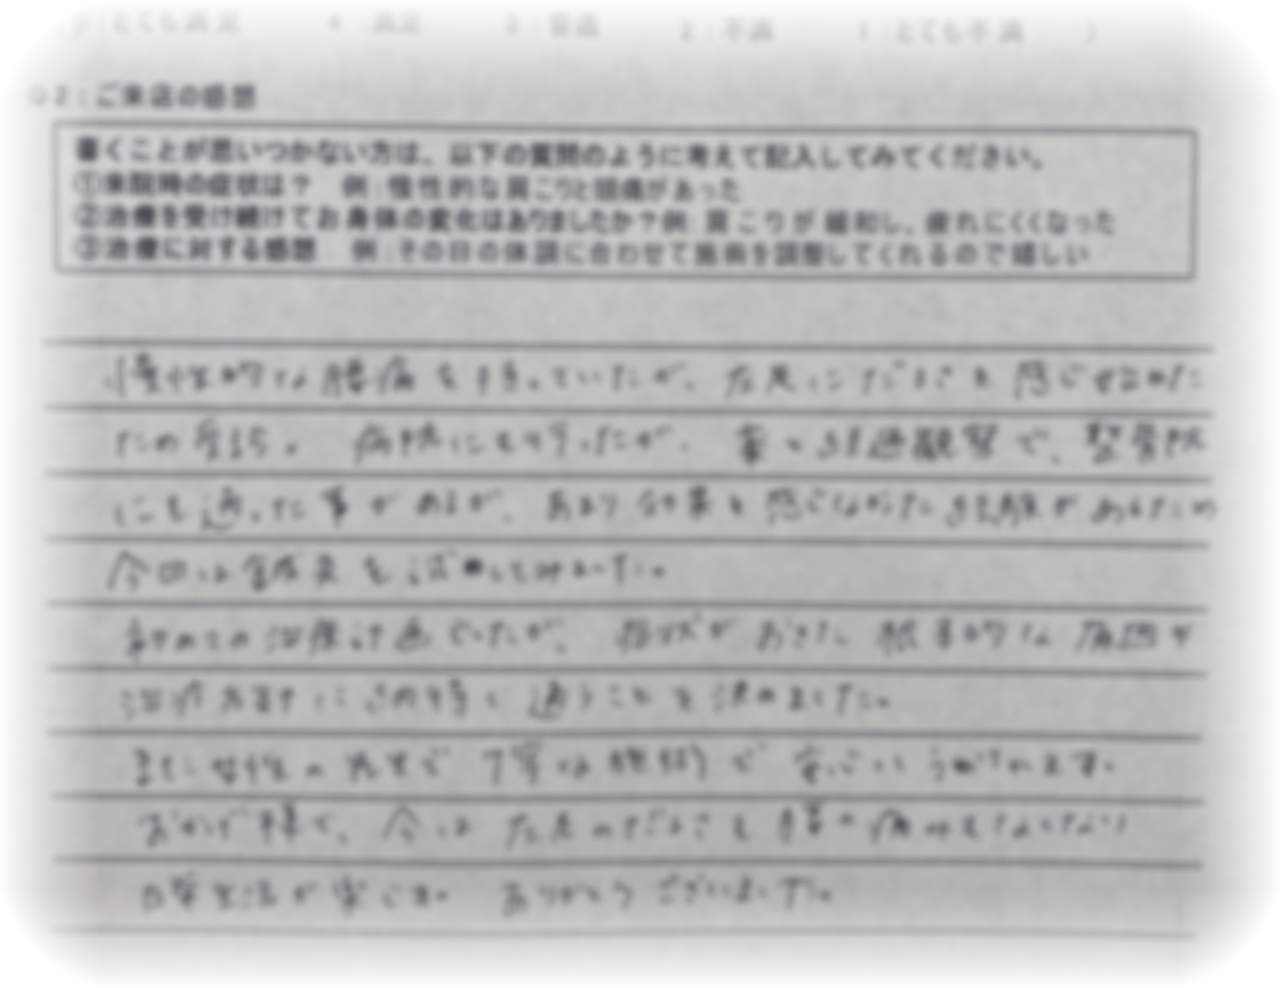 5：とても満足　4：満足　3：普通　2：不満　1：とても不満　）
Q2：ご来店の感想
書くことが思いつかない方は、以下の質問のように考えて記入してみてください。
①来院時の症状は？　例：慢性的な肩こりと頭痛があった
②治療を受け続けてお身体の変化はありましたか？例：肩こりが緩和し、疲れにくくなった
③治療に対する感想　例：その日の体調に合わせて施術を調整してくれるので嬉しい
慢性的な腰痛を持っていたが、左足にだるさを感じはじめた
ため受診。病院にも行ったが、薬と経過観察で、整骨院
にも通った事があるが、あまり効果を感じなかった経験があるため
今回は鍼灸を試してみました。
初めての治療は
症状がおきた根本的な原因が
通うことを決めました。
また女性の先生で丁寧な施術で安心してうけれます。
おかげ様で、今は左足のだるさも腰の痛みもなくなり
日常生活が楽です。ありがとうございました。